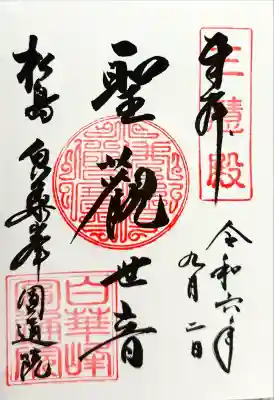 奉拝
三慧殿
令和六年
九月二日
聖観世音
松島 白華峰
圓通院
白華峰
圓通院